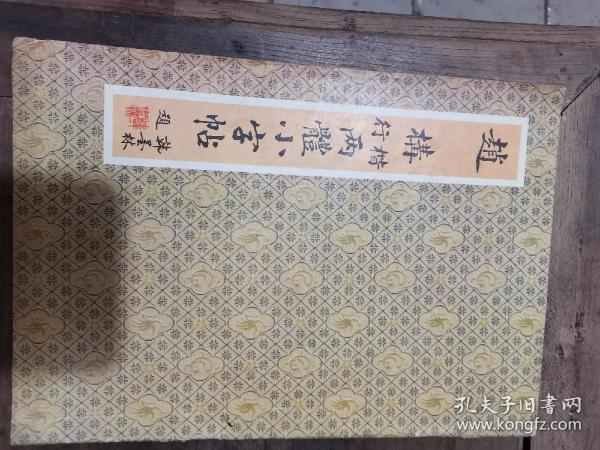 趙構楷行兩體小字帖
題
孔夫子旧书网
www.kongfz.com